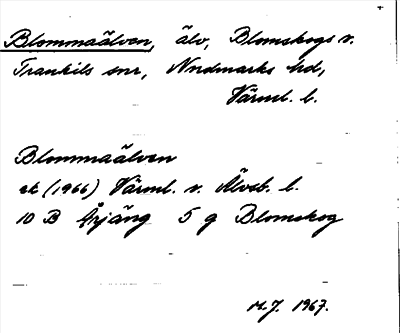 Blommaälven, älv, Blomskogs o.
Trankils snr, Nordmarks hd,
Värml. l.
Blommaälven
ek (1966) Värml. o. Älvsb. l.
10 B Årjäng 5 g Blomskog
1967.